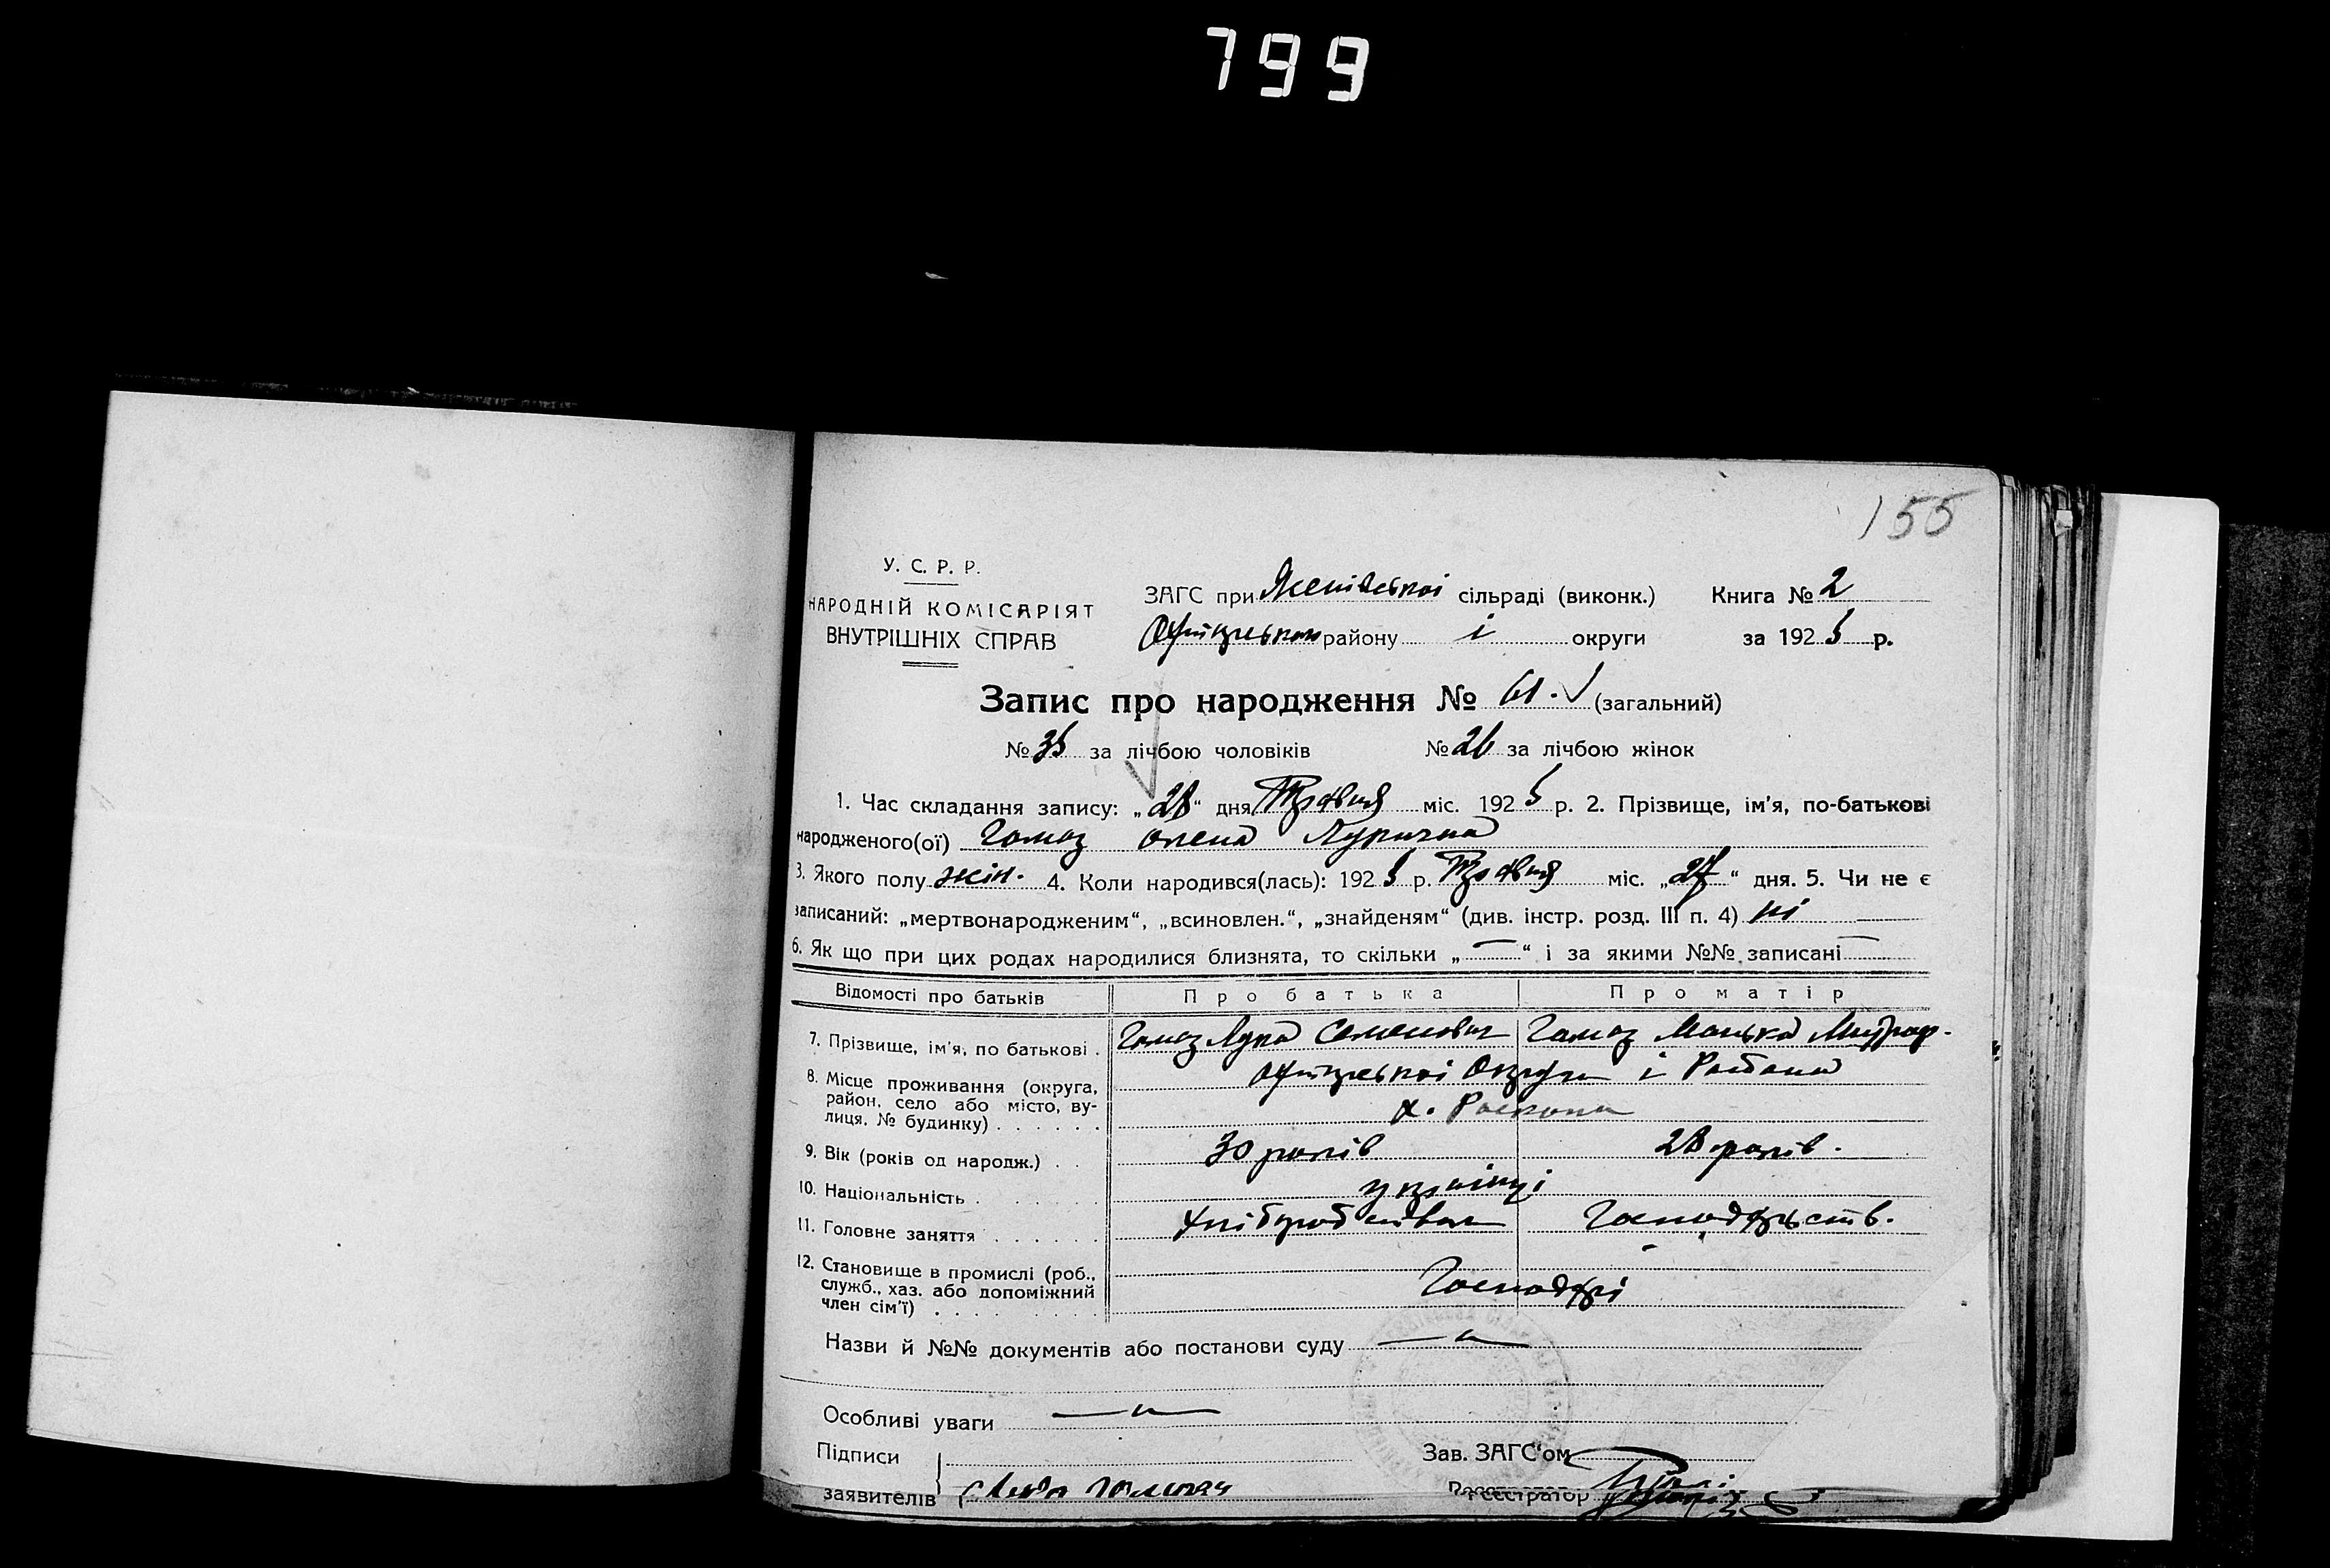 799
155
У. С. Р. Р.
НАРОДНІЙ КОМІСАРІЯТ
ВНУТРІШНІХ СПРАВ
ЗАГС при сільраді (виконк.) Книга № 2
району і округи за 1925 р.
Запис про народження № 61. (загальний)
№ 35 за лічбою чоловіків № 26 за лічбою жінок
1. Час складання запису: „28“ дня Травня міс. 1925 р. 2. Прізвище, ім'я, по-батькові
народженого(ої) Гамаз Олена Лукична
3. Якого полу жін. 4. Коли народився(лась): 1925 р. Травня міс. „27“ дня. 5. Чи не є
записаний: „мертвонародженим“, „всиновлен.“, „знайденям“ (див. інстр. розд. III п. 4) ні
6. Як що при цих родах народилися близнята, то скільки „—“ і за якими №№ записані —
Відомості про батьків Про батька Про матір
7. Прізвище, ім'я, по батькові . Гамаз Лука Семенович Гамаз Манька
8. Місце проживання (округа, Округи і Района
район, село або місто, ву-
лиця, № будинку) . . . . . . х.
9. Вік (років од народж.) . . 30 років 28 років.
10. Національність . українці
11. Головне заняття . . . . . . Господарств.
12. Становище в промислі (роб.,
служб., хаз. або допоміжний Господарі
член сім'ї) . . . .
Назви й №№ документів або постанови суду —"—
Особливі уваги —"—
Підписи Зав. ЗАГС'ом
заявителів Реєстратор